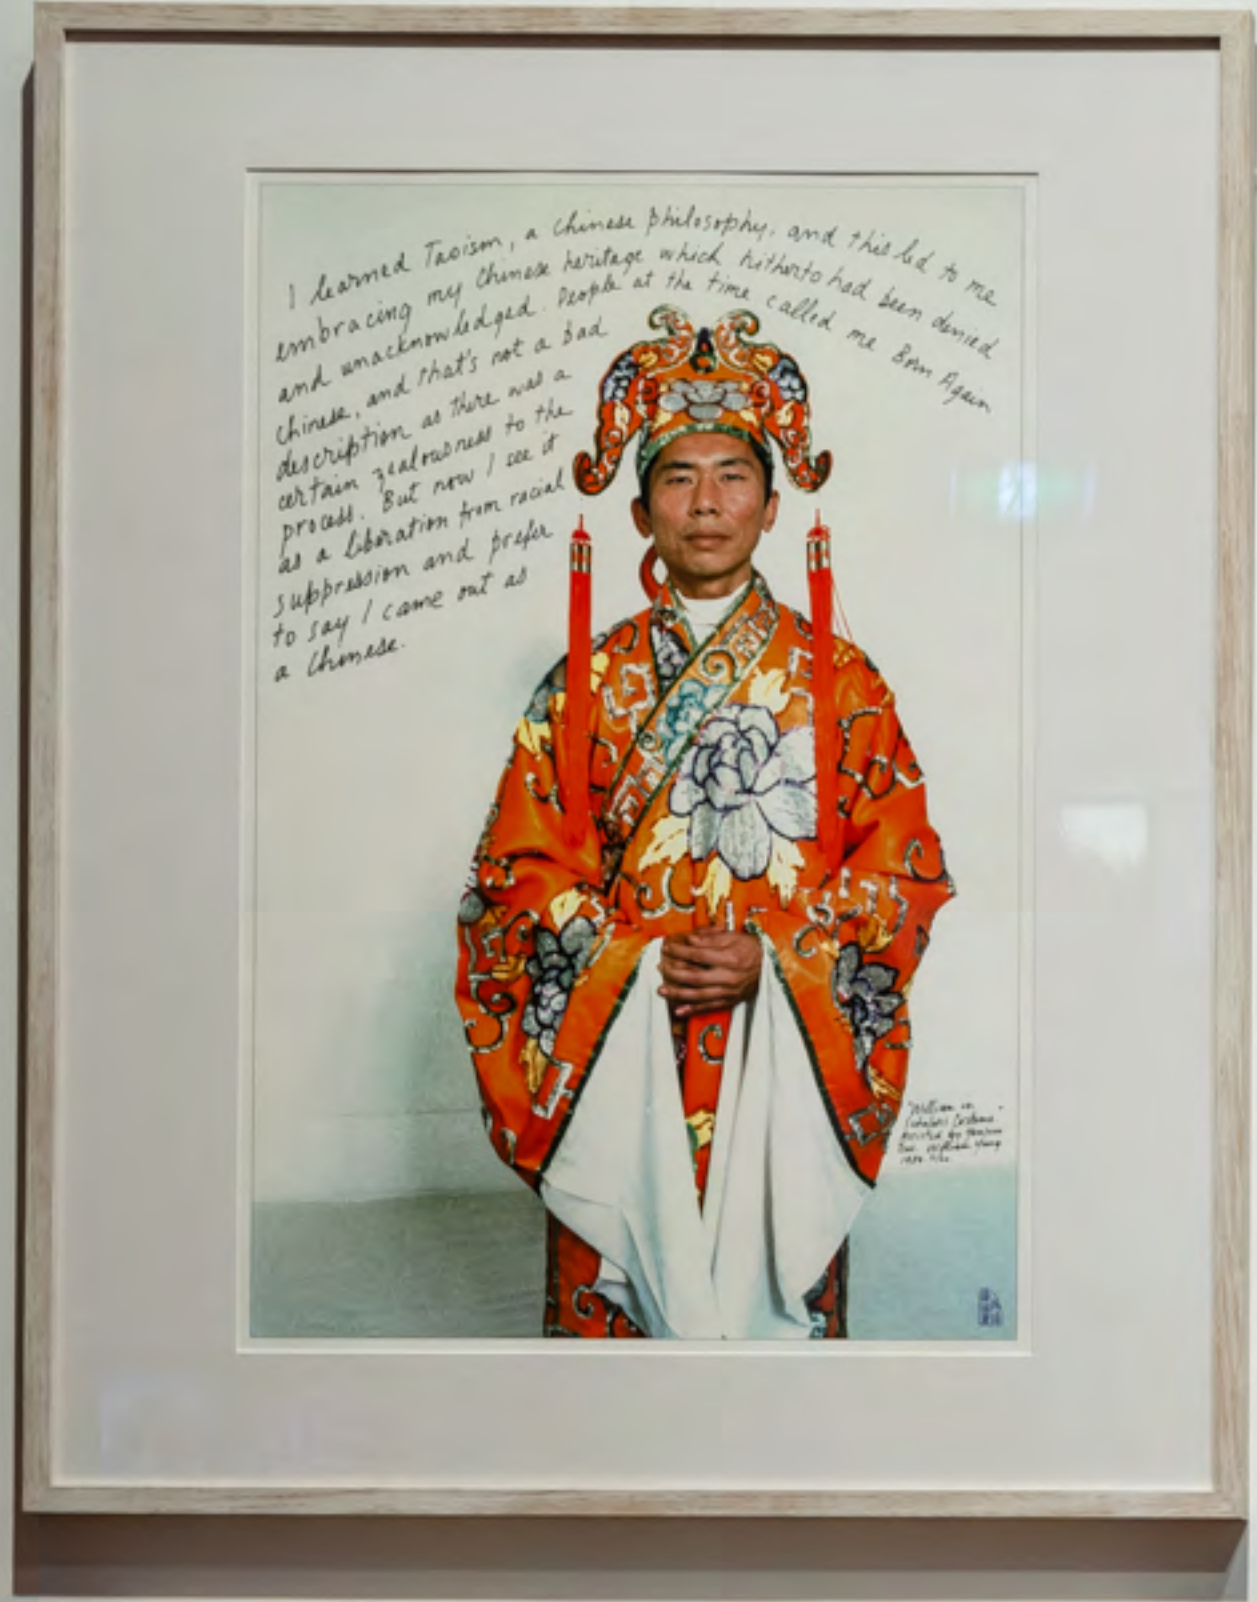 I learned Taoism, a Chinese philosophy, and this led to me
embracing my Chinese heritage which hitherto had been denied
and unacknowledged. People at the time called me Born Again
Chinese, and that's not a bad
description as there was a
certain zealousness to the
process. But now I see it
as a liberation from racial
suppression and prefer
to say I came out as
a Chinese.
"William in
Scholars Costume"
by
William Yang